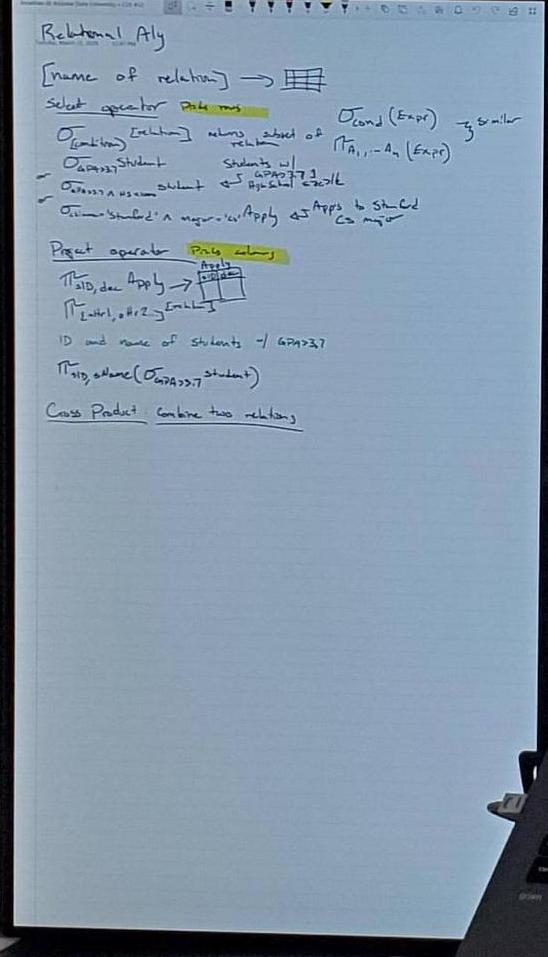 Relational Alg
[name of relation] →
Select operator Picks rows
σ[condition] [relation] returns subset of relation
σcond (Expr)
πA1,...An (Expr)
} similar
σGPA>3.7 Student Students w/ GPA>3.7
σGPA>3.7 ∧ HS<1000 Student
σcname='Stanford' ∧ major='cs' Apply Apps to Stanford CS major
Project operator Picks columns
Apply
πsID,dec Apply → sID dec
π[attr1,attr2..]
ID and name of students w/ GPA>3.7
πsID,sName(σGPA>3.7 Student)
Cross Product: Combine two relations